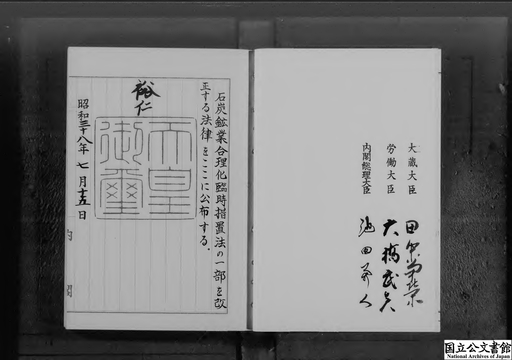 石炭鉱業合理化臨時措置法の一部を改
正する法律をここに公布する。
裕仁
天皇
御璽
昭和三十八年七月十五日
内
閣
大蔵大臣 田中角榮
労働大臣 大橋武夫
内閣総理大臣 池田勇人
国立公文書館
National Archives of Japan